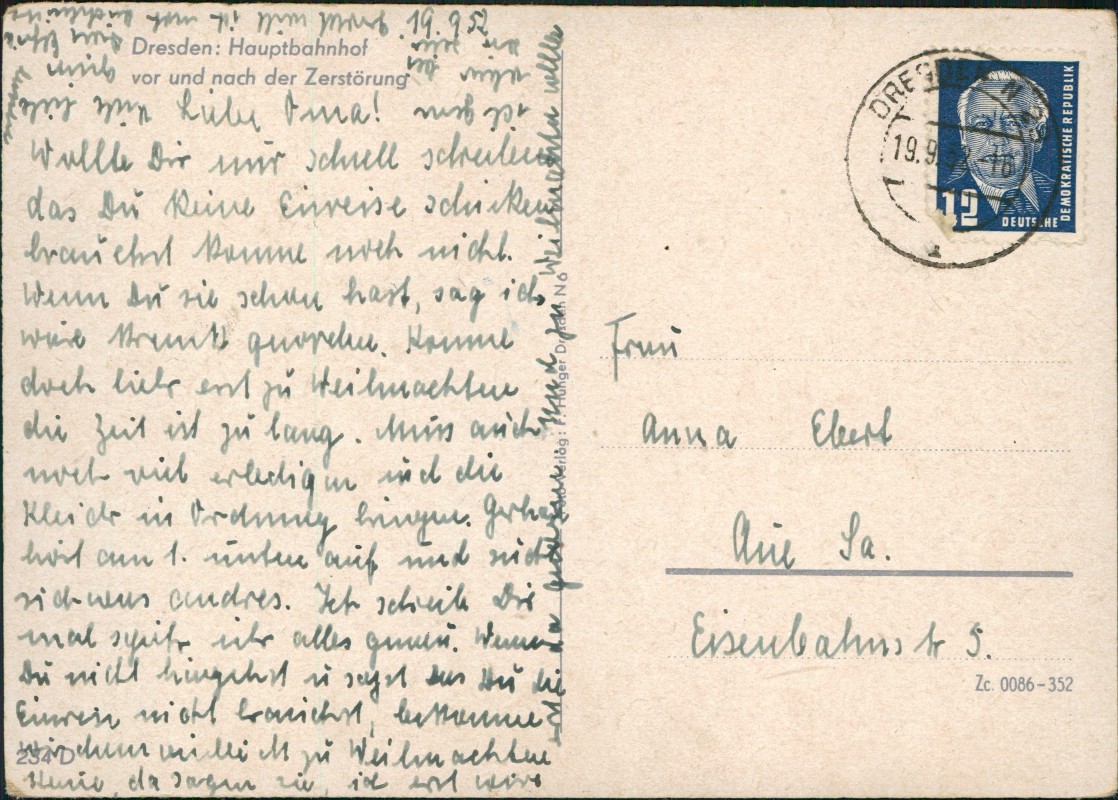 19.9.52
Dresden: Hauptbahnhof
vor und nach der Zerstörung
Liebe Oma!
Wollte Dir nur schnell schreiben
das Du keine Einreise schicken
brauchst komme noch nicht.
Wenn Du sie schon hast, sag ich
wär krank geworden. Komme
doch lieber erst zu Weihnachten
die Zeit ist zu lang. Muss auch
noch viel erledigen und die
Kleider in Ordnung bringen.
hört am 1. unten auf und sucht
sich was andres. Ich schreib Dir
mal später alles genau. Wenn
Du nicht hingehst u sagst das Du die
Einreise nicht brauchst, bekomme
ich dann vielleicht zu Weihnachten
keine, da sagen sie, ich
erst da gewesen. Und zu Weihnachten wollte
Foto-Verlag: F. Hunger Dresden N 6
234 D
DRESDEN N 23
19.9.52-18
12
DEUTSCHE DEMOKRATISCHE REPUBLIK
Frau
Anna Ebert
Aue Sa.
Eisenbahnstr 5.
Zc. 0086-352